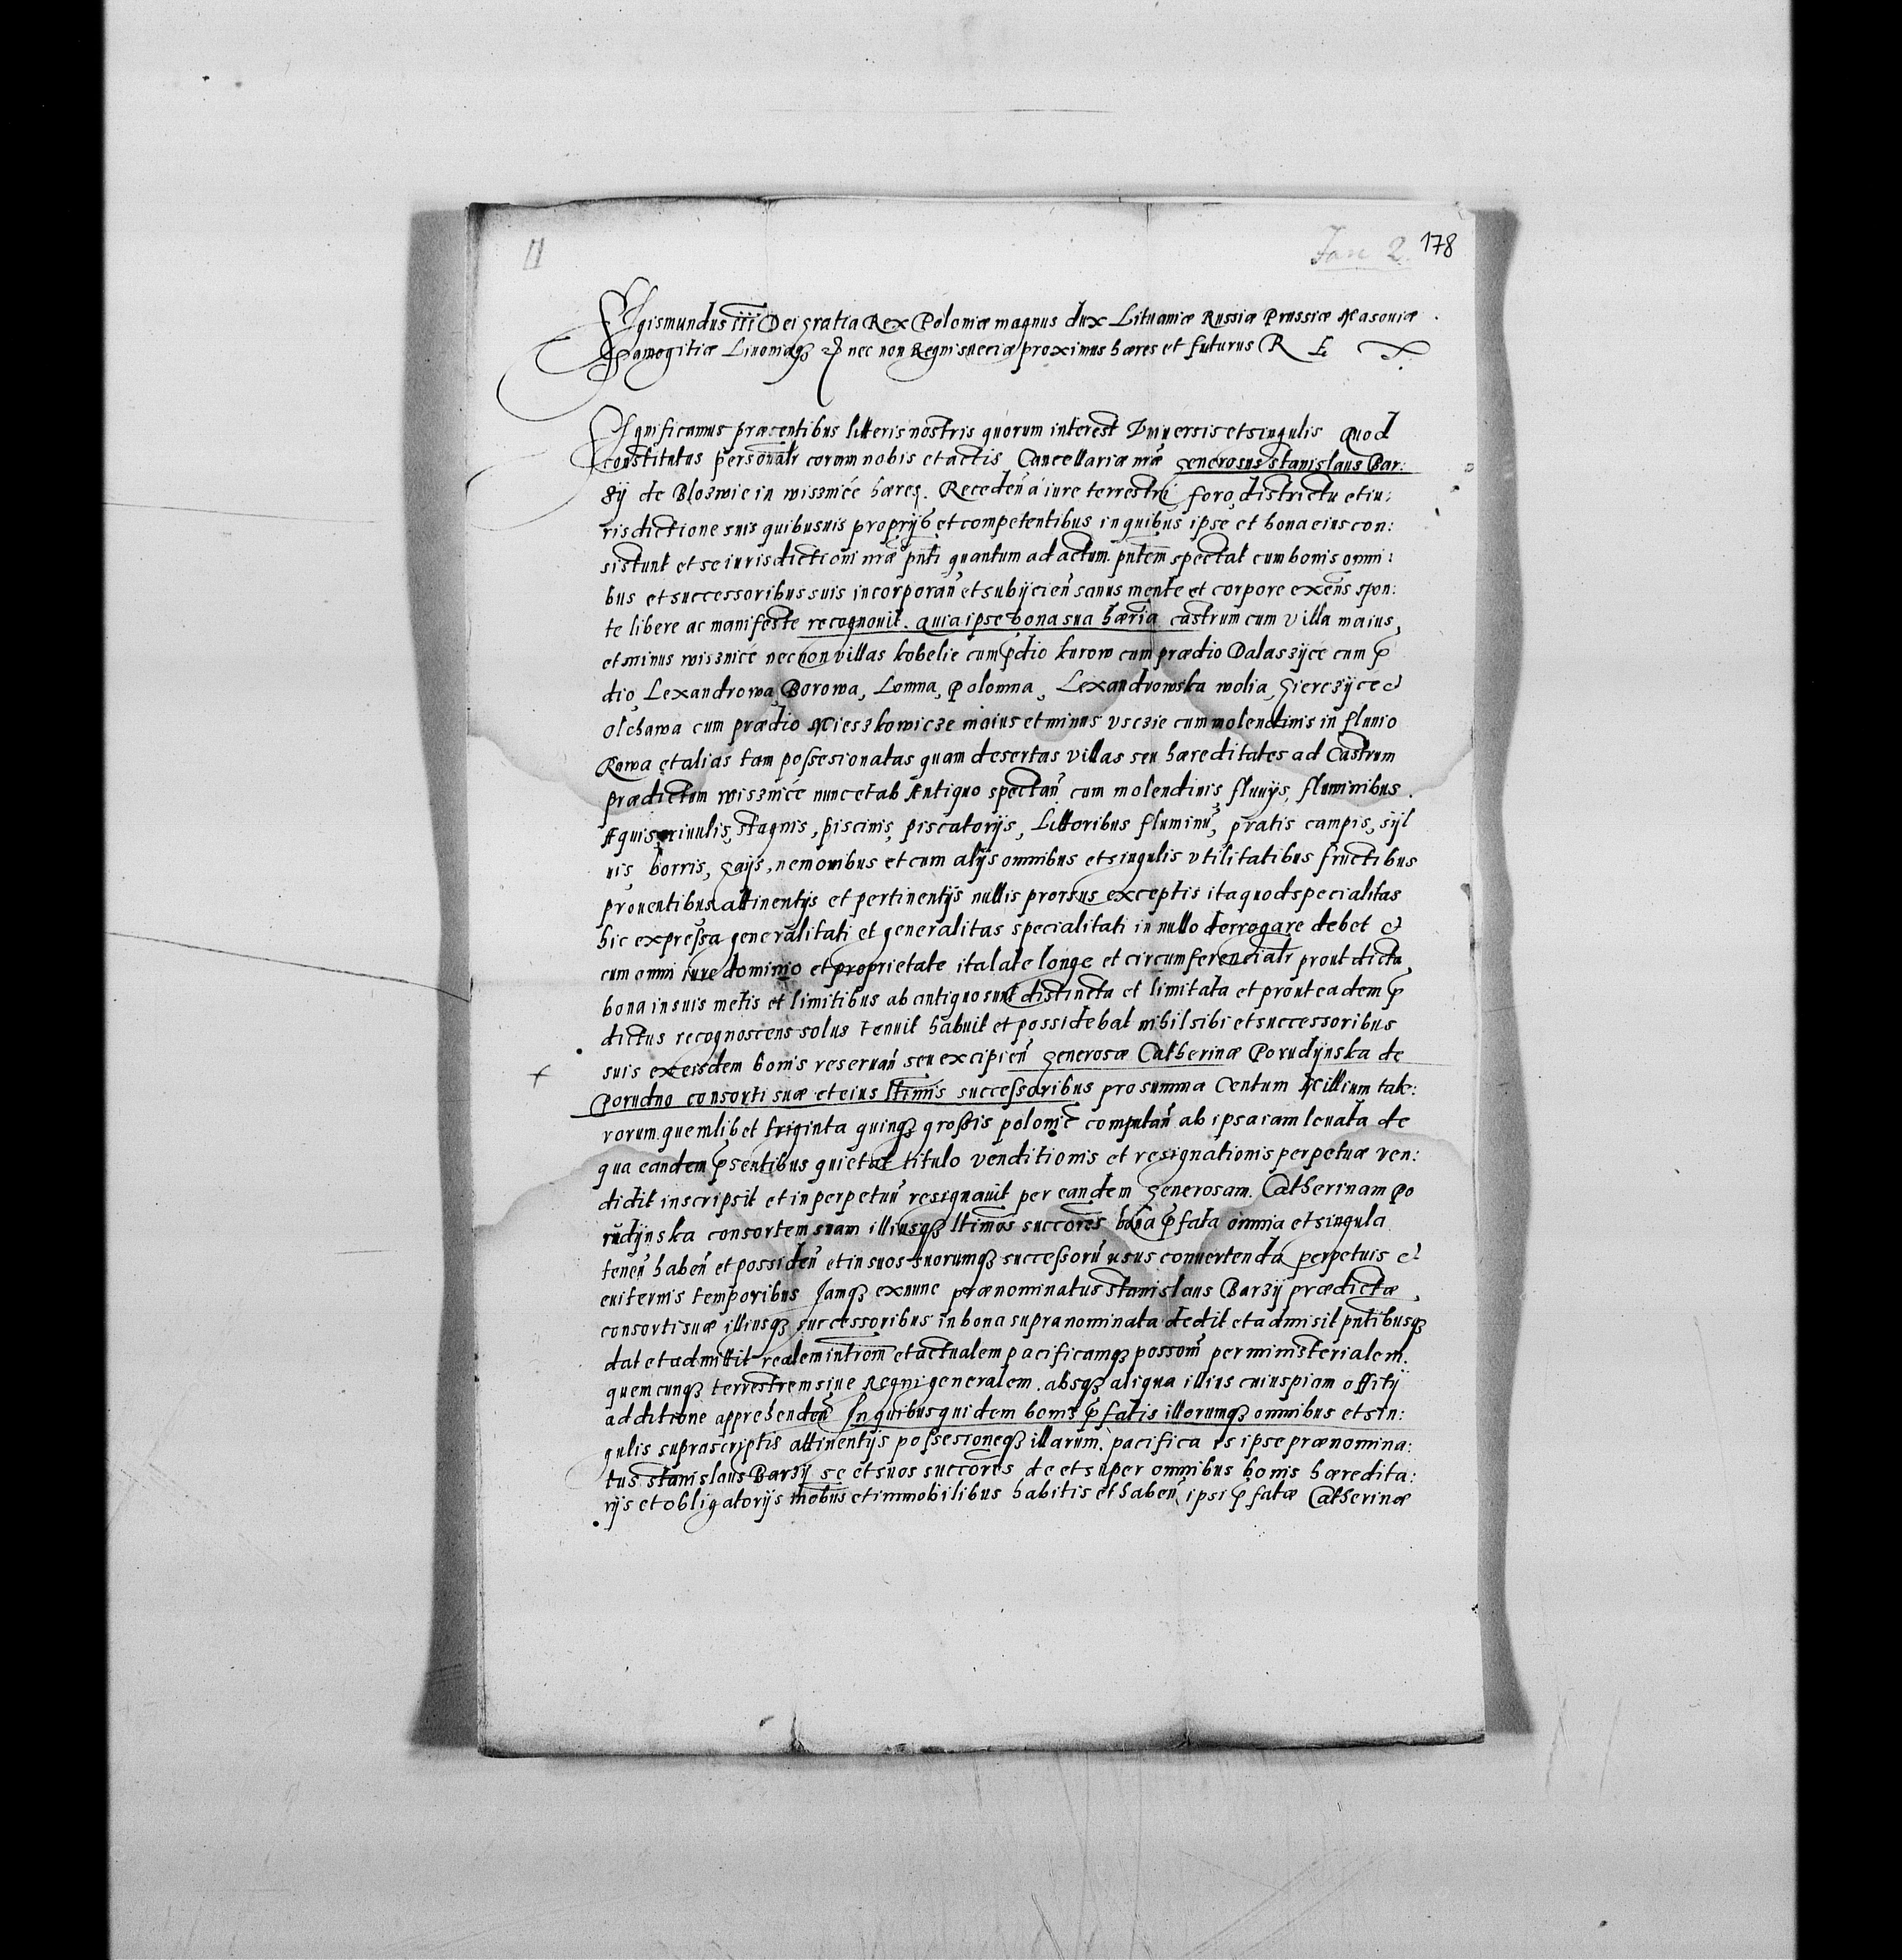 Jan 2. 178
Sigismundus iii Dei gratia Rex Poloniæ magnus dux Lituaniæ Russiæ Prussiæ Masouiæ
Samogitiæ Liuoniæq3 nec non Regni sueciæ proximus hæres et futurus R E X
Significamus præsentibus litteris nostris quorum interest Vniuersis et singulis Quod
constitutus personalr coram nobis et actis Cancellariæ nræ generosus stanislaus Bar:
zij de Blozwie in wisznicé hæres. Receden̄ á iure terrestri foro districtu et iu:
risdictione suis quibusuis proprijs et competentibus in quibus ipse et bona eius con:
sistunt et se iurisdictioni nræ pnti quantum ad actum pntem spectat cum bonis omni:
bus et successoribus suis incorporan̄ et subijcien̄ sanus mente et corpore exens spon:
te libere ac manifeste recognouit. quia ipse bona sua hæria castrum cum villa maius,
et minus wisznicé nec non villas kobelie cum pdio kurow cum prædio Dalaszijcé cum p
dio Lexandrowa, Borowa, Lomna, Polomna, Lexandrowska wolia, gierczijce et
olchawa cum prædio Mieszkowicze maius et minus vsczie cum molendinis in fluuio
Rawa et alias tam possesionatas quam desertas villas seu hæreditates ad Castrum
prædictum wisznicé nunc et ab Antiquo spectan̄ cum molendinis, fluuijs, fluminibus.
Aquis, riuulis, stagnis, piscinis, piscatorijs, Littoribus fluminū, pratis campis, sijl
uis borris, gaijs, nemoribus et cum alijs omnibus et singulis vtilitatibus fructibus
prouentibus attinentijs et pertinentijs nullis prorsus exceptis ita quod specialitas
hic expressa generalitati et generalitas specialitati in nullo derrogare debet et
cum omni iure dominio et proprietate ita late longe et circumferencialr prout dicta
bona in suis metis et limitibus ab antiquo sunt distincta et limitata et prout eadem p
dictus recognoscens solus tenuit habuit et possidebat nihil sibi et successoribus
suis ex eisdem bonis reseruan̄ seu excipien̄ generosæ Catherinæ Porudijnska de
Porudno consorti suæ et eius ltimis successoribus pro summa Centum Millium tale:
rorum quemlibet triginta quinq3 grossis polonic computan̄ ab ipsa iam leuata de
qua eandem psentibus quietat titulo venditionis et resignationis perpetuæ ven:
didit inscripsit et in perpetuū resignauit per eandem generosam Catherinam Po
rudijnska consortem suam illiusq3 ltimos succores bona pfata omnia et singula
tenen̄ haben̄ et possiden̄ et in suos suorumq3 successorū usus conuertenda perpetuis et
euiternis temporibus Jamq3 ex nunc prænominatus stanislaus Barzij prædictæ,
consorti suæ illiusq3 successoribus in bona supranominata dedit et admisit pntibusq3
dat et admittit realem introm et actualem pacificamq3 possom per ministerialem
quemcunq3 terrestrem siue Regni generalem absq3 aliqua illius cuiuspiam offitij
additione apprehenden̄ In quibus quidem bonis pfatis illorumq3 omnibus et sin:
gulis suprascriptis attinentijs possesioneq3 illarum pacifica is ipse prænomina:
tus stanislaus Barzij se et suos succores de et super omnibus bonis hæredita:
rijs et obligatorijs mobus et immobilibus habitis et haben̄ ipsi pfatæ Catherinæ